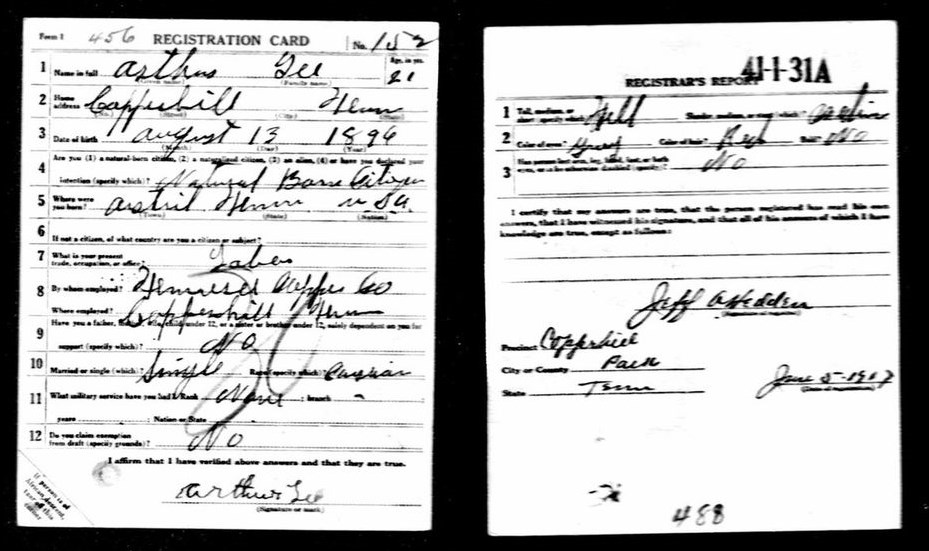 Form 1 456 REGISTRATION CARD No. 152
1 Name in full Arthur Lee Age, in yrs. 21
(Given name) (Family name)
2 Home address Copperhill Tenn
(No.) (Street) (City) (State)
3 Date of birth August 13 1896
(Month) (Day) (Year)
4 Are you (1) a natural-born citizen, (2) a naturalized citizen, (3) an alien, (4) or have you declared your
intention (specify which)? Natural Born Citizen
5 Where were you born? Tenn U S A
(Town) (State) (Nation)
6 If not a citizen, of what country are you a citizen or subject?
7 What is your present trade, occupation, or office? Labor
8 By whom employed? Tennessee Copper Co
Where employed? Copperhill Tenn
9 Have you a father, mother, wife, child under 12, or a sister or brother under 12, solely dependent on you for
support (specify which)? No
10 Married or single (which)? Single Race (specify which)?
11 What military service have you had? Rank None ; branch -
years ; Nation or State
12 Do you claim exemption from draft (specify grounds)? No
I affirm that I have verified above answers and that they are true.
Arthur Lee
(Signature or mark)
If person is of African descent, tear off this corner
REGISTRAR'S REPORT 41-1-31A
1 Tall, medium, or short (specify which)? Tall Slender, medium, or stout (which)?
2 Color of eyes? Color of hair? Red Bald? No
3 Has person lost arm, leg, hand, foot, or both
eyes, or is he otherwise disabled (specify)? No
I certify that my answers are true, that the person registered has read his own
answers, that I have witnessed his signature, and that all of his answers of which I have
knowledge are true, except as follows:
Jeff A Hedden
(Signature of registrar)
Precinct Copperhill
City or County Polk
State Tenn
June 5-1917
(Date of registration)
488